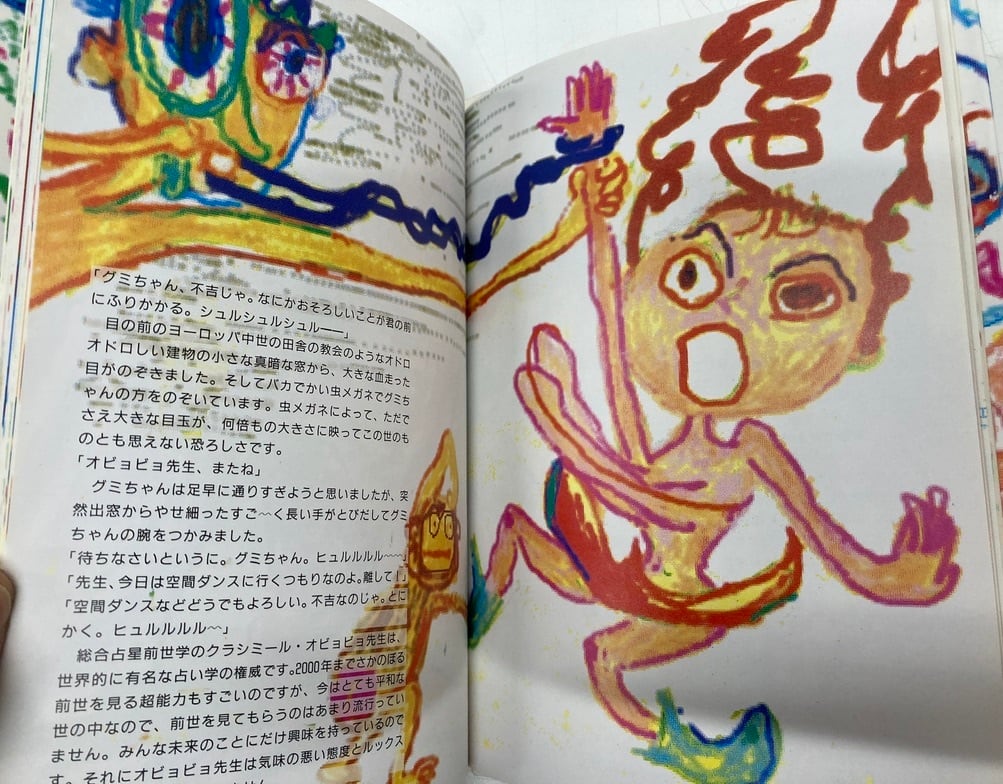 「グミちゃん、不吉じゃ。なにかおそろしいことが君の前
にふりかかる。シュルシュルシュル——」
目の前のヨーロッパ中世の田舎の教会のようなオドロ
オドロしい建物の小さな真暗な窓から、大きな血走った
目がのぞきました。そしてバカでかい虫メガネでグミち
ゃんの方をのぞいています。虫メガネによって、ただで
さえ大きな目玉が、何倍もの大きさに映ってこの世のも
のとも思えない恐ろしさです。
「オビョビョ先生、またね」
グミちゃんは足早に通りすぎようと思いましたが、突
然出窓からやせ細ったすご〜く長い手がとびだしてグミ
ちゃんの腕をつかみました。
「待ちなさいというに。グミちゃん。ヒュルルルル〜」
「先生、今日は空間ダンスに行くつもりなのよ。離して！」
「空間ダンスなどどうでもよろしい。不吉なのじゃ。とに
かく。ヒュルルルル〜」
総合占星前世学のクラシミール・オビョビョ先生は、
世界的に有名な占い学の権威です。2000年までさかのぼる
前世を見る超能力もすごいのですが、今はとても平和な
世の中なので、前世を見てもらうのはあまり流行ってい
ません。みんな未来のことにだけ興味を持っているので
す。それにオビョビョ先生は気味の悪い態度とルックス